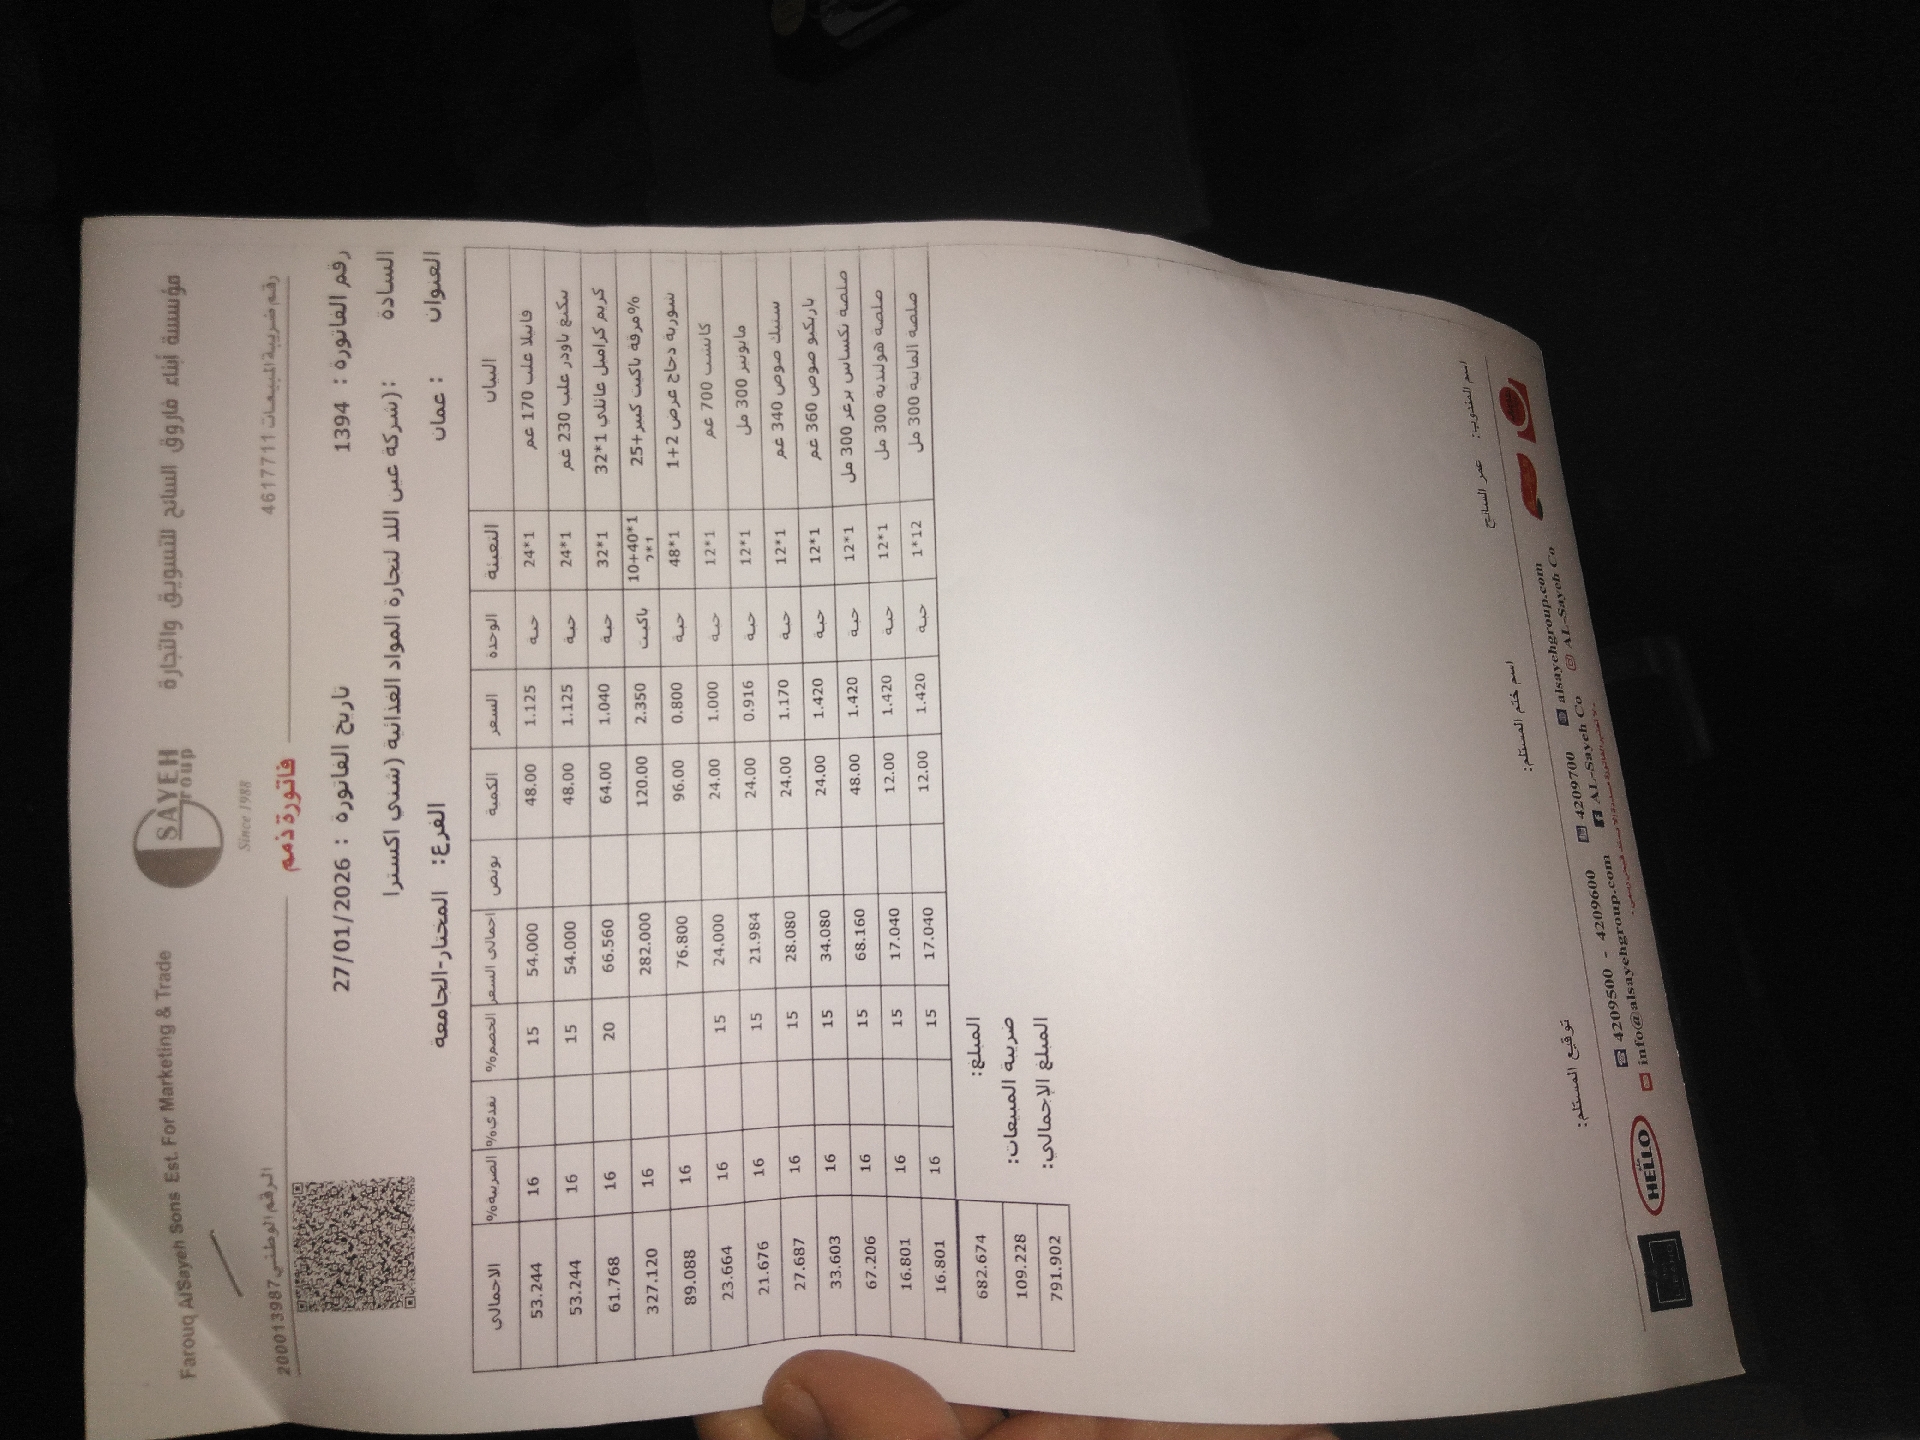 مؤسسة أبناء فاروق السائح للتسويق والتجارة
SAYEH
Group
Since 1988
Farouq AlSayeh Sons Est. For Marketing & Trade
رقم ضريبة المبيعات 4617711
فاتورة ذمم
الرقم الوطني 200013987
رقم الفاتورة : 1394
تاريخ الفاتورة : 27/01/2026
السادة : (شركة عين اللد لتجارة المواد الغذائية (شني اكسترا
العنوان : عمان
الفرع: المختار-الجامعة
البيان التعبئة الوحدة السعر الكمية بونص اجمالي السعر الخصم% نقدي% الضريبة% الاجمالي
فانيلا علب 170 غم 24*1 حبة 1.125 48.00 54.000 15 16 53.244
بيكنج باودر علب 230 غم 24*1 حبة 1.125 48.00 54.000 15 16 53.244
كريم كراميل عائلي 1*32 32*1 حبة 1.040 64.00 66.560 20 16 61.768
%مرقة باكيت كبير+25 10+40*1 باكيت 2.350 120.00 282.000 16 327.120
شوربة دجاج عرض 2+1 48*1 حبة 0.800 96.00 76.800 16 89.088
كاتشب 700 غم 12*1 حبة 1.000 24.00 24.000 15 16 23.664
مايونيز 300 مل 12*1 حبة 0.916 24.00 21.984 15 16 21.676
ستيك صوص 340 غم 12*1 حبة 1.170 24.00 28.080 15 16 27.687
باربكيو صوص 360 غم 12*1 حبة 1.420 24.00 34.080 15 16 33.603
صلصة تكساس برغر 300 مل 12*1 حبة 1.420 48.00 68.160 15 16 67.206
صلصة هولندية 300 مل 12*1 حبة 1.420 12.00 17.040 15 16 16.801
صلصة المانية 300 مل 1*12 حبة 1.420 12.00 17.040 15 16 16.801
المبلغ: 682.674
ضريبة المبيعات: 109.228
المبلغ الإجمالي: 791.902
اسم المندوب: عمر السائح
اسم ختم المستلم:
توقيع المستلم:
4209500 - 4209600 4209700 alsayehgroup.com
info@alsayehgroup.com AL-Sayeh Co AL-Sayeh Co
HELLO